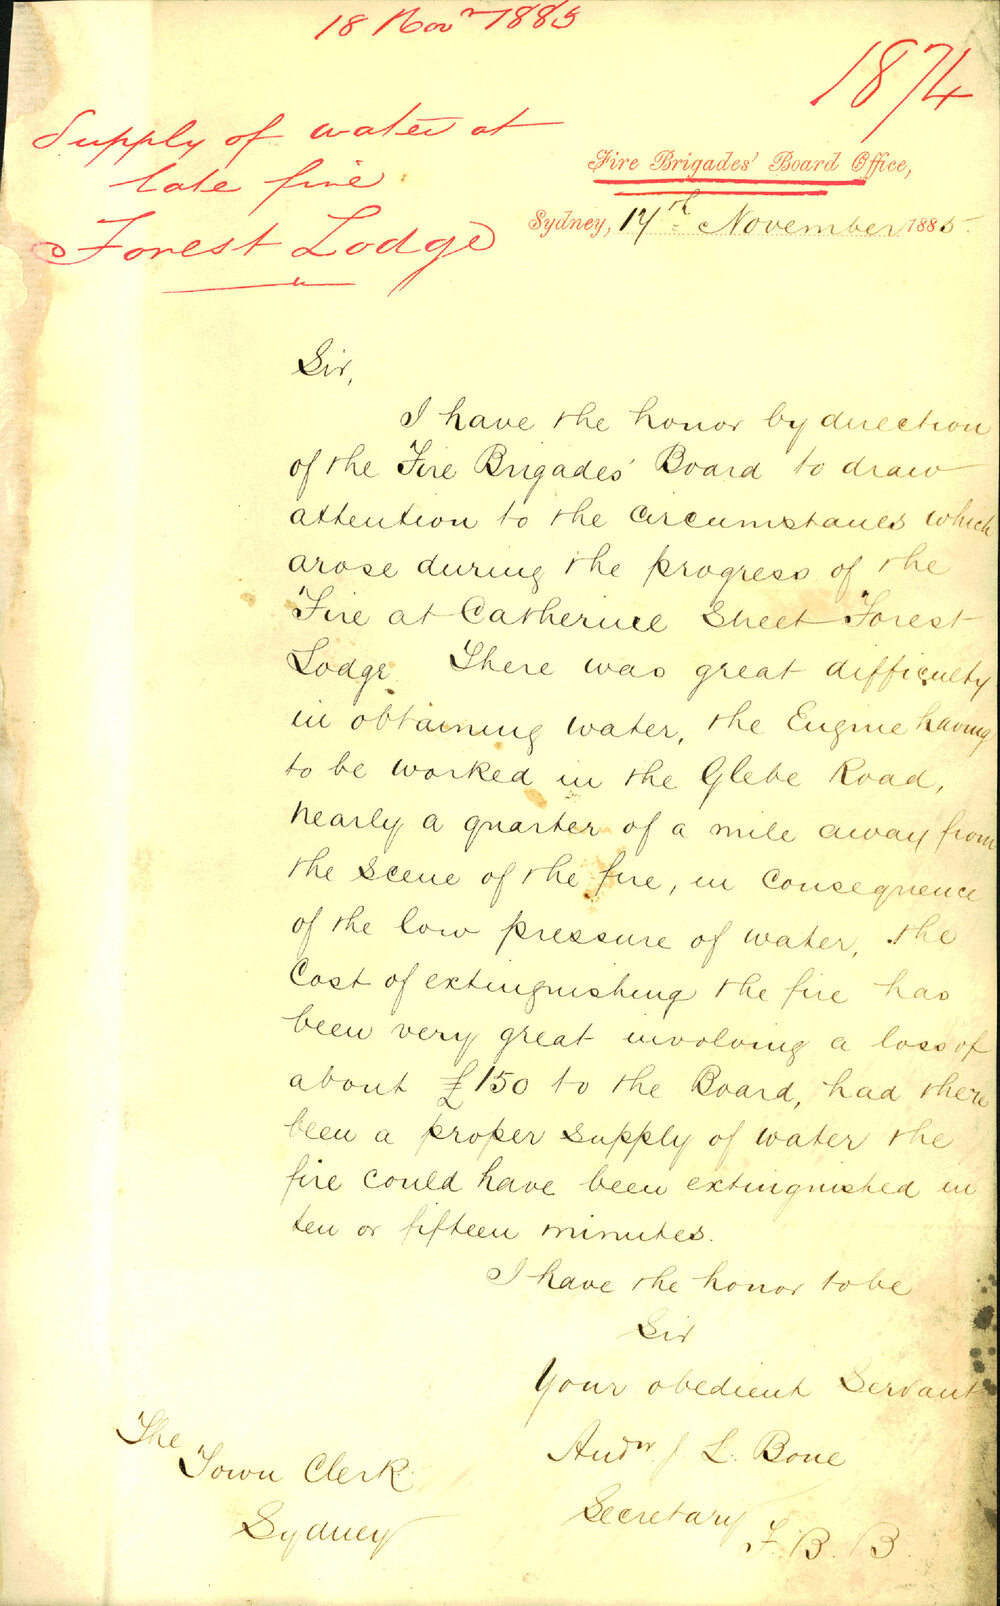 18 Novr 1885
1874
Supply of water at
late fire
Forest Lodge
Fire Brigades' Board Office,
Sydney, 17th November 1885.
Sir,
I have the honor by direction
of the Fire Brigades' Board to draw
attention to the circumstances which
arose during the progress of the
Fire at Catherine Street Forest
Lodge. There was great difficulty
in obtaining water, the Engine having
to be worked in the Glebe Road,
nearly a quarter of a mile away from
the scene of the fire, in consequence
of the low pressure of water, the
Cost of extinguishing the fire has
been very great involving a loss of
about £150 to the Board, had there
been a proper supply of water the
fire could have been extinguished in
ten or fifteen minutes.
I have the honor to be
Sir
Your obedient Servant
Andw J L. Bone
Secretary
F. B. B.
The
Town Clerk
Sydney